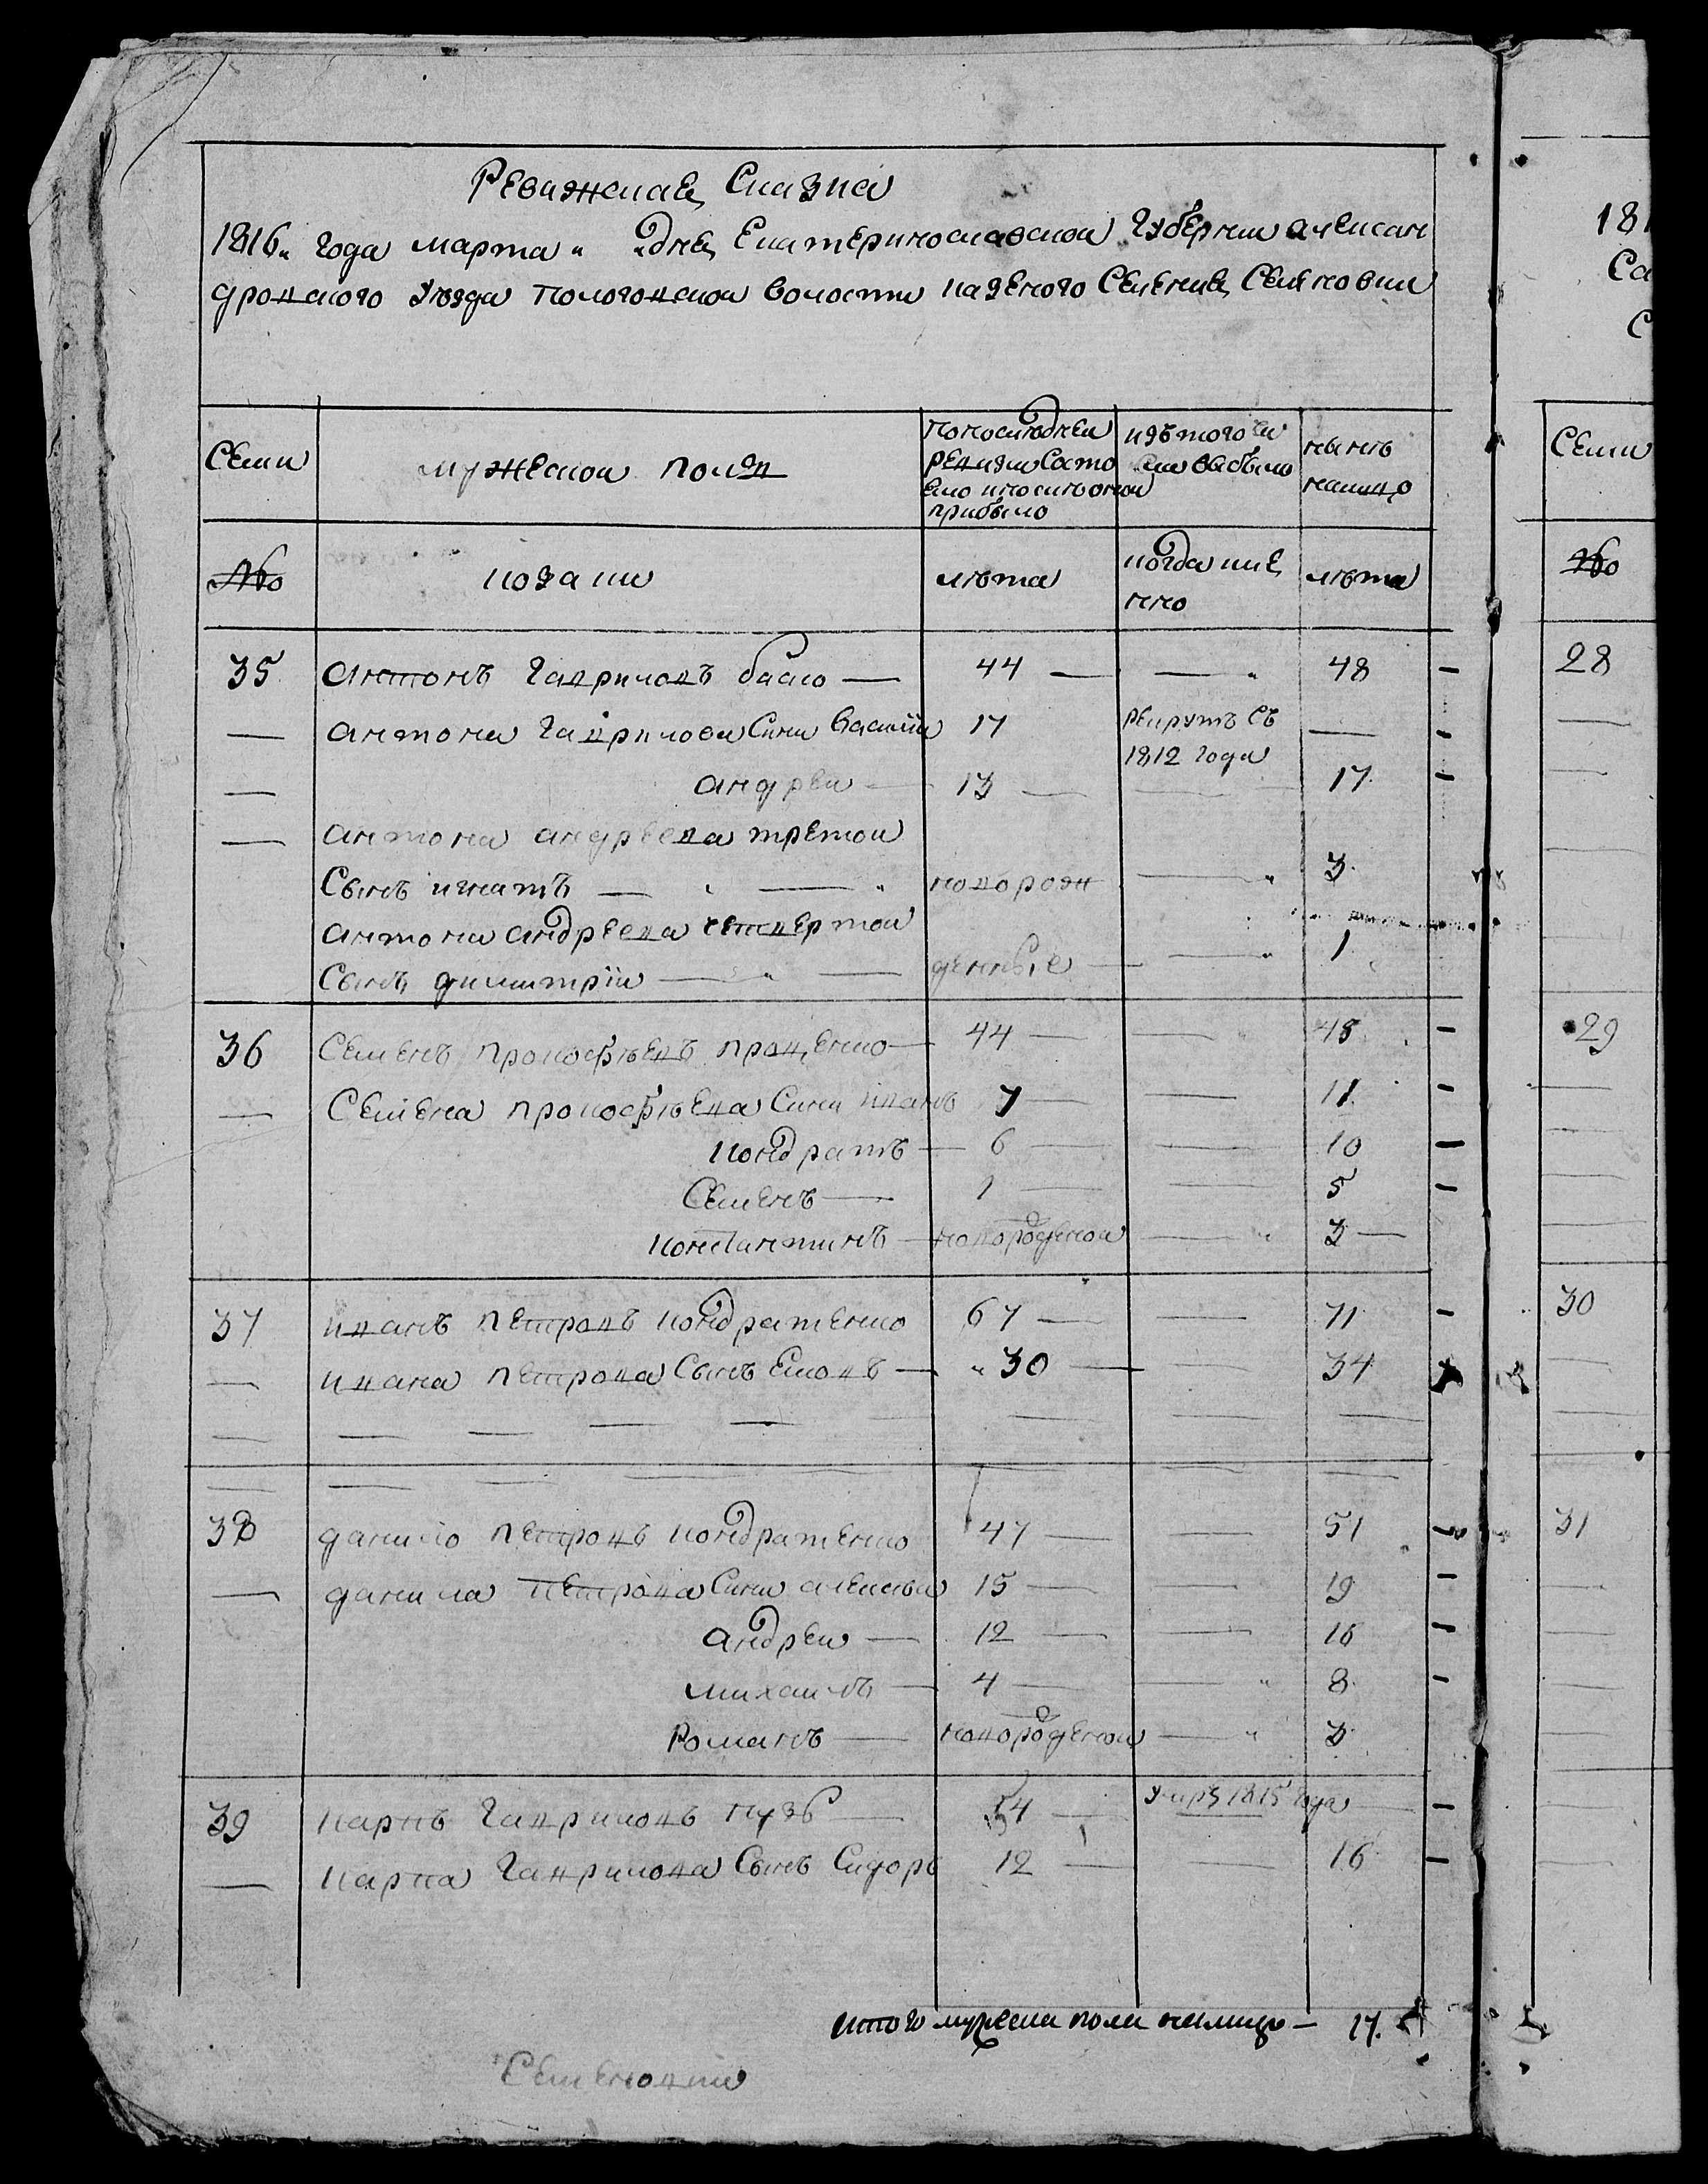 Ревижская Сказка
1816„ года марта „ „ дня Екатеринославской губернии алексан
дровского уезда пологовской волости казеного Селения Семеновки
Семи
мужеской полъ
попоследней
ревизии Сато
яло ипослѣоной
прибыло
изътого чи
сла выбыло
нынѣ
налицо
№
козаки
лѣта
когда име
нно
лѣта
35 антонъ гавриловъ баало — 44 — — „ 48 —
— антона гаврилова Сини василий 17 рекрутъ Съ — —
1812 года
— андрей — 13 — — 17 —
— антона андреева третои
Сынъ игнатъ — „ — „ новорож — „ 3
антона андреева четвертои
Сынъ димитрiй — „ — денные — — „ 1
36 Семенъ прокофѣевъ проценко — 44 — — „ 48 —
— Семена прокофѣева Сини иванъ 7 — — 11 —
кондратъ — 6 — — 10 —
Семенъ — 1 — — 5 —
константинъ — новорожденои — „ 3 —
37 иванъ петровъ кондратенко 67 — — 71 —
— ивана петрова Сынъ яковъ — „ 30 — — 34
38 данило петровъ кондратенко 47 — — 51 —
— данила петрова Сини алексѣй 15 — — 19 —
андрей — 12 — — 16 —
михаилъ — 4 — — „ 8 —
Романъ — новорожденои — „ 3
39 карпъ гавриловъ кузъ — 54 — умръ 1815 года —
— карпа гаврилова Сынъ Сидоръ 12 — — 16 —
итого мужеска пола налицо — 17.
Семеновки
181
Са
С
Семи
№
28
29
30
31